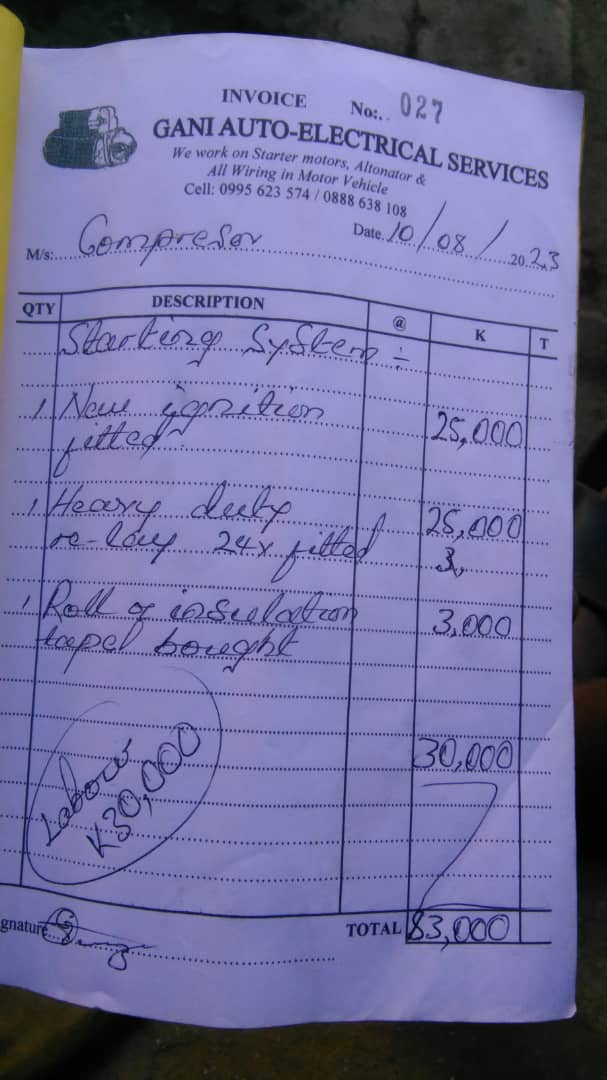 INVOICE No:.. 027
GANI AUTO-ELECTRICAL SERVICES
We work on Starter motors, Altonator &
All Wiring in Motor Vehicle
Cell: 0995 623 574 / 0888 638 108
Date. 10/08/ 2023
M/s: Compresor
QTY DESCRIPTION @ K T
Starting System :-
1 New ignition
fitted 25,000
1 Heavy duty 25,000
re-lay 24v fitted 3,
1 Roll of insulation 3,000
tapel bought
30,000
Labour
K30,000
gnature
TOTAL 83,000